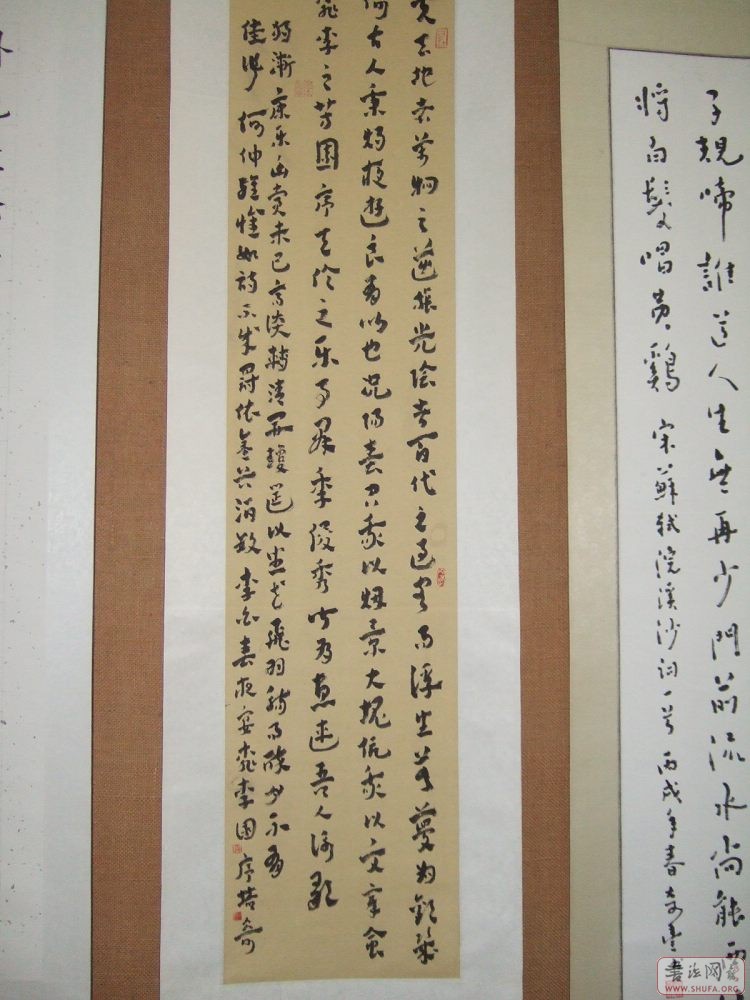 子規啼誰道人生無再少門前流水尚能西
將白髮唱黃雞 宋蘇軾浣溪沙詞一首 丙戌年春
天地者萬物之逆旅光陰者百代之過客而浮生若夢為歡幾
何古人秉燭夜遊良有以也況陽春召我以煙景大塊假我以文章會
桃李之芳園序天倫之乐事群季俊秀皆為惠連吾人詠歌
獨慚康乐幽賞未已高談轉清開瓊筵以坐花飛羽觴而醉月不有
佳作何伸雅懷如詩不成罰依金谷酒數 李白春夜宴桃李園序
書法网
WWW.SHUFA.ORG